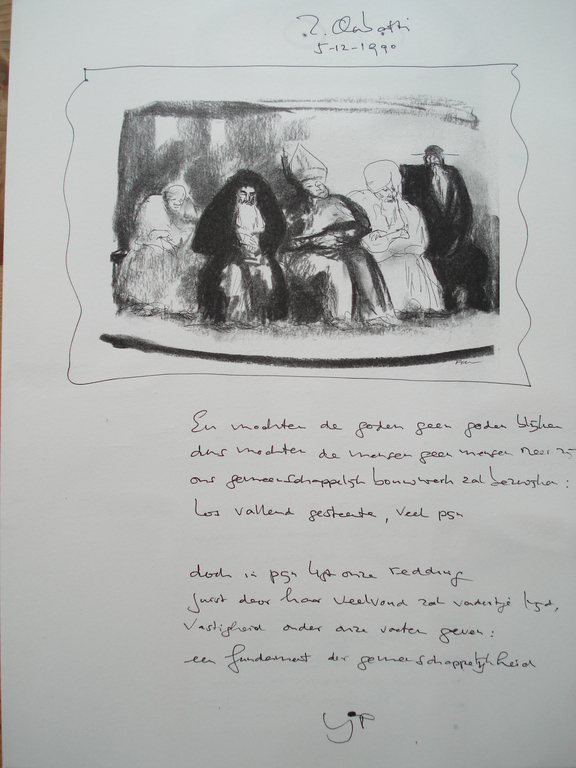 5-12-1990
En mochten de goden geen goden blijken
dus mochten de mensen geen mensen meer zij
ons gemeenschappelijk bouwwerk zal bezwijken:
los vallend gesteente, veel pijn
doch in pijn ligt onze redding
juist door haar veelvoud zal vadertje tijd,
vastigheid onder onze voeten geven:
een fundament der gemeenschappelijkheid